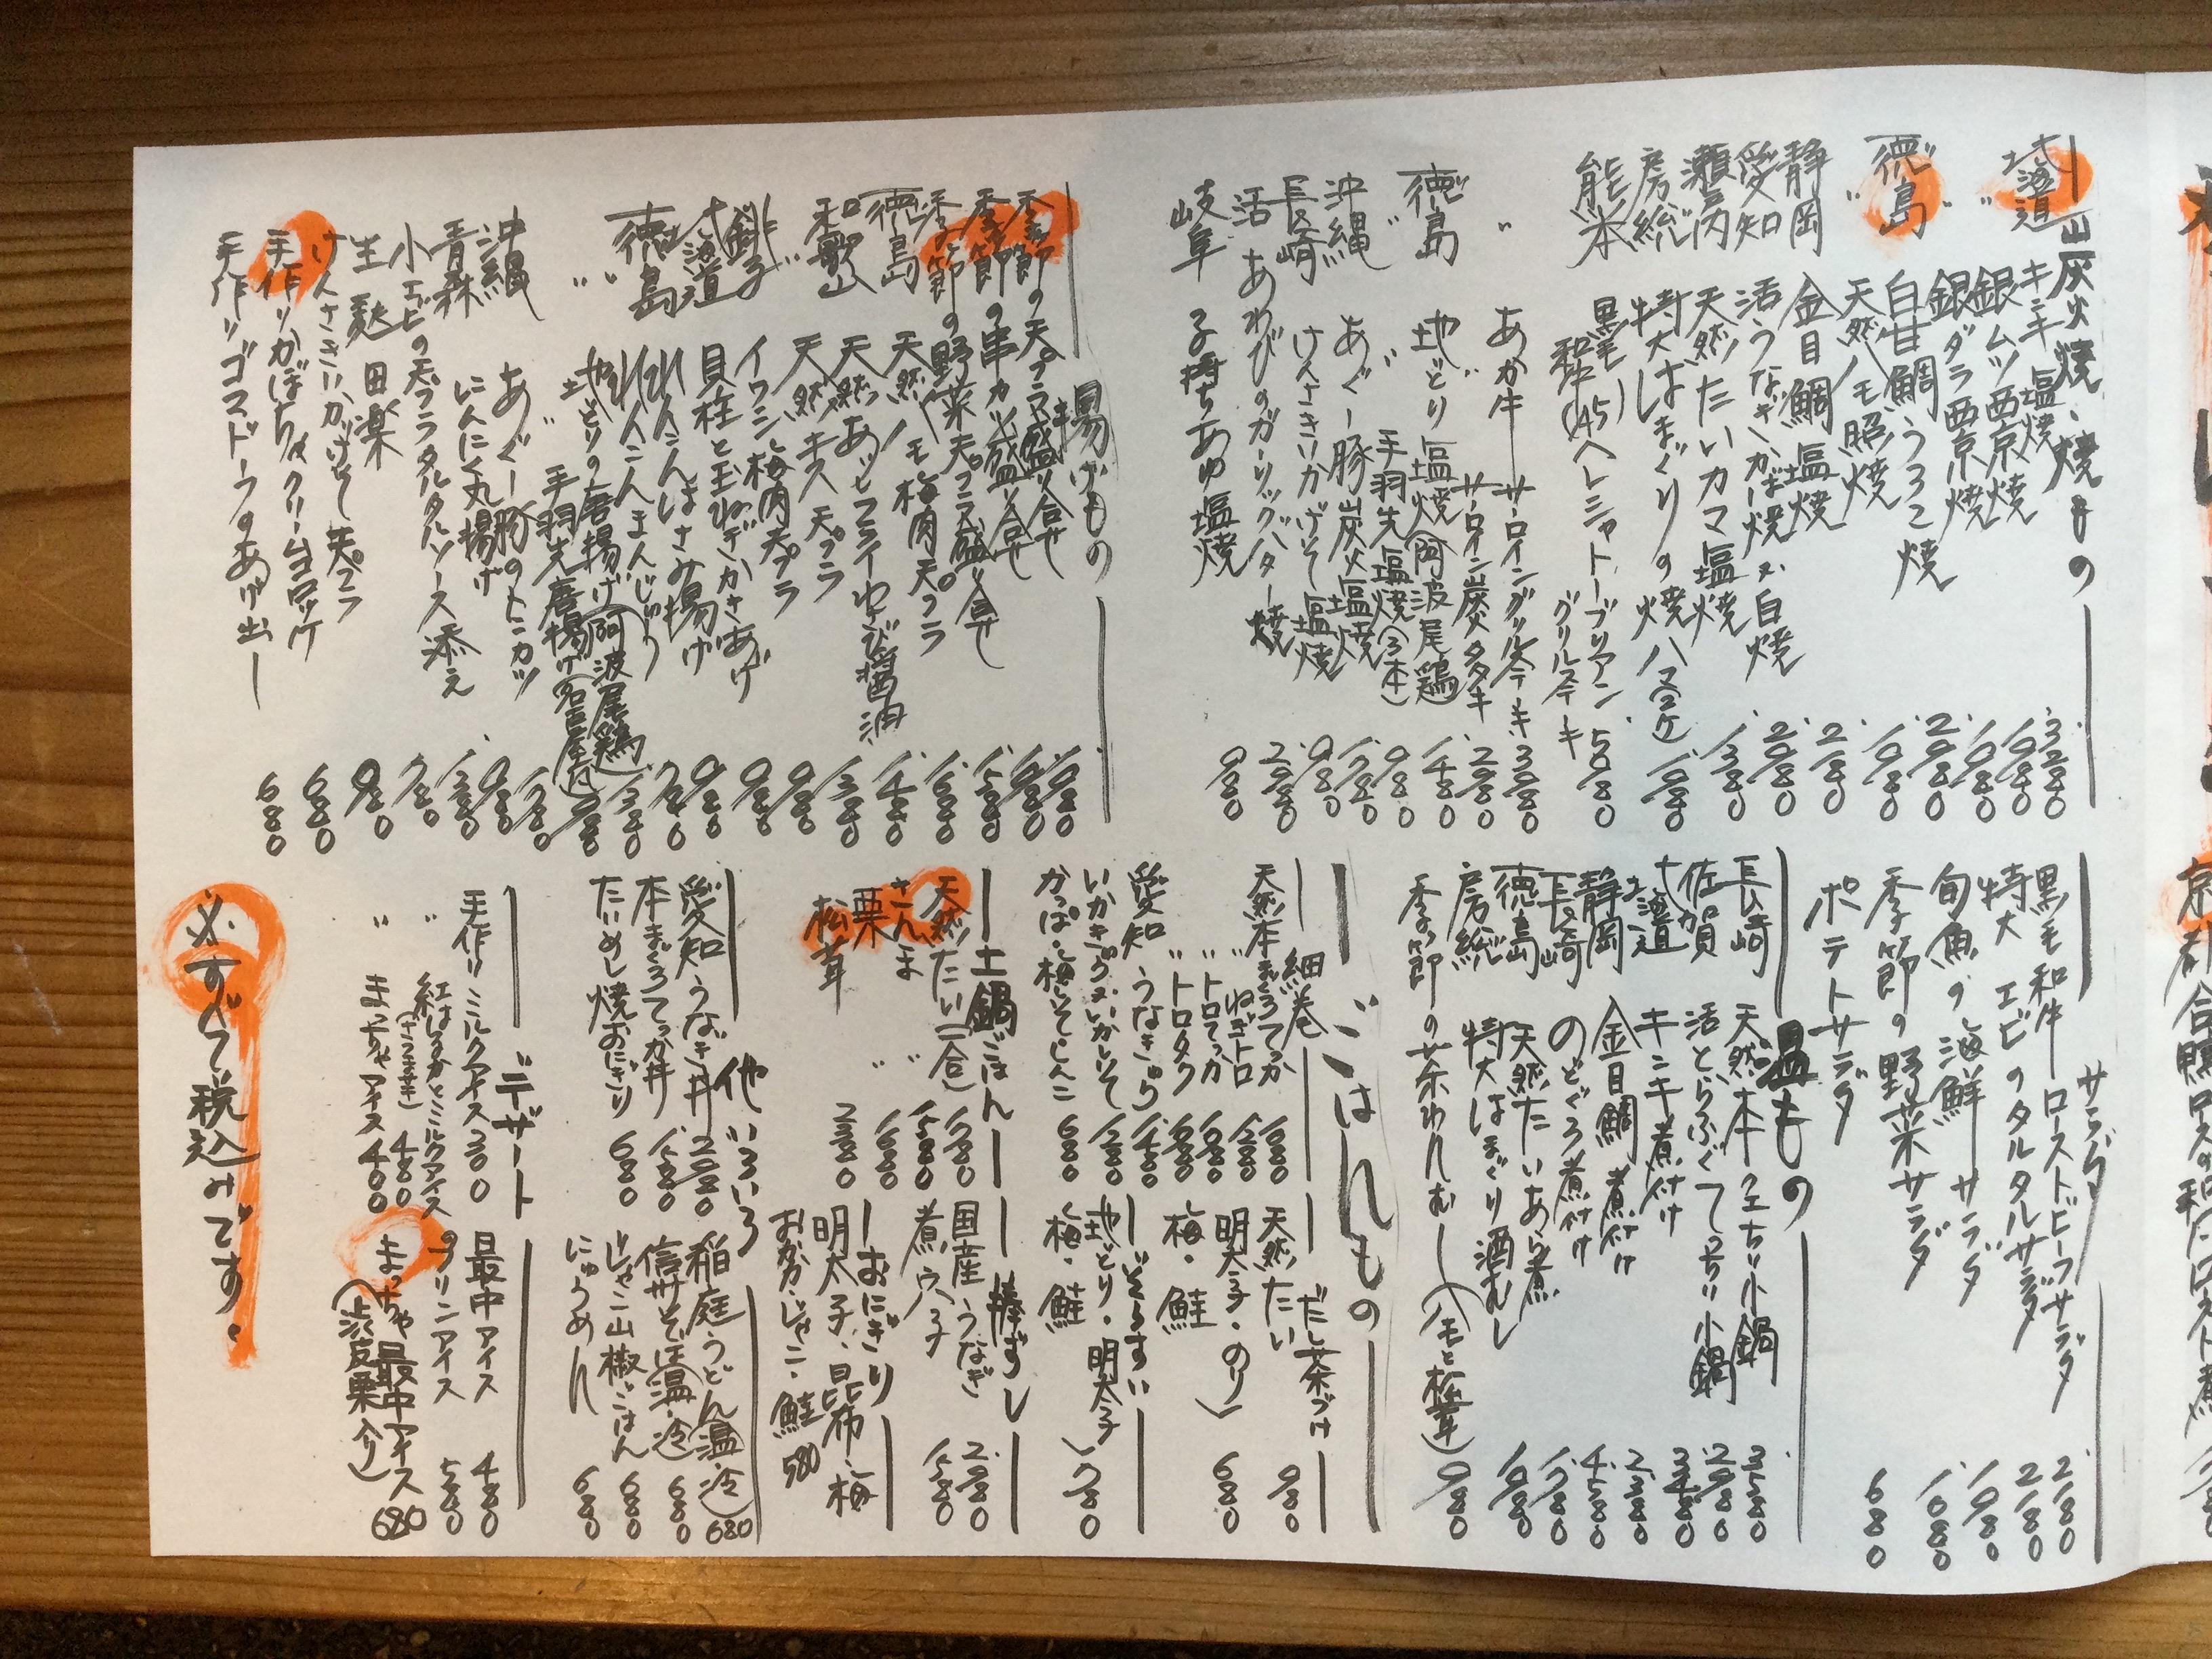 炭火焼、焼もの
北海道 キンキ塩焼 3280
〃 銀ムツ西京焼 1980
銀ダラ西京焼 1980
徳島 白甘鯛うろこ焼 2980
〃 天然ハモ照焼 1980
静岡 金目鯛塩焼 2180
愛知 活うなぎかば焼又白焼 2980
瀬戸内 天然たいカマ塩焼 1380
房総 特大はまぐりの焼ハマ(2ケ) 1080
熊本 黒毛和牛(A5)ヘレシャトーブリアン
グリルステーキ 5080
〃 あか牛サーロイングリルステーキ 3080
〃 サーロイン炭火タタキ 2980
徳島 地どり塩焼(阿波尾鶏) 1480
〃 〃 手羽先塩焼(3本) 980
沖縄 あぐー豚炭火塩焼 1780
長崎 けんさきいかげそ塩焼 980
活あわびのガーリックバター焼 2980
岐阜 子持ちあゆ塩焼 980
揚げもの
季節の天プラ盛り合せ 1980
季節の串カツ盛り合せ 1980
季節の野菜天プラ盛り合せ 1580
徳島 天然ハモ梅肉天プラ 1680
和歌山 天然あじフライわさび醤油 1480
〃 天然キス天プラ 1380
銚子 イワシ梅肉天プラ 980
北海道 貝柱と玉ねぎかきあげ 980
徳島 れんこんはさみ揚げ 980
〃 れんこんまんじゅう 780
〃 地どりの唐揚げ(阿波尾鶏) 1380
〃 手羽先唐揚げ(名古屋風)
沖縄 あぐー豚のトンカツ
青森 にんにく丸揚げ 980
小エビの天プラタルタルソース添え 1380
生麩田楽 780
けんさきいかげそ天プラ 980
手作りかぼちゃクリームコロッケ 680
手作りゴマドーフのあげ出し 680
サラダ
黒毛和牛ローストビーフサラダ 2180
特大エビのタルタルサラダ 2180
旬魚の海鮮サラダ 1980
季節の野菜サラダ 1080
ポテトサラダ 680
温もの
長崎 天然本クエちり小鍋 3580
佐賀 活とらふぐてっちり小鍋 2980
北海道 キンキ煮付け 3480
静岡 金目鯛煮付け 2380
長崎 のどぐろ煮付け 4580
徳島 天然たいあら煮 1780
房総 特大はまぐり酒むし 1080
季節の茶わんむし(ハモと松茸) 980
ごはんもの
細巻
天然本まぐろてっか 1080
〃 ねぎトロ 1280
〃 トロてっか 1680
〃 トロタク 1680
愛知 うなきゅう 1480
いかきゅう又いかしそ 1280
かっぱ・梅しそ・しんこ 680
だし茶づけ
天然たい 980
明太子・のり
梅・鮭 680
ぞうすい
地どり・明太子
梅・鮭 780
土鍋ごはん
天然たい(一合) 1780
さんま 〃 1580
栗 〃 1680
松茸 2980
棒ずし
国産うなぎ 2980
煮穴子 1580
おにぎり
明太子、昆布、梅
おかか、じゃこ、鮭 580
他いろいろ
愛知うなぎ丼 2980
本まぐろてっか丼 1580
たいめし焼おにぎり 680
稲庭うどん(温・冷) 680
信州そば(温・冷) 680
じゃこ山椒ごはん 680
にゅうめん 680
デザート
手作りミルクアイス 300
〃 紅はるかとミルクアイス
(さつま芋) 480
〃 まっちゃアイス 400
最中アイス 480
プリンアイス 580
まっちゃ最中アイス 680
(渋皮栗入り)
※すべて税込みです。